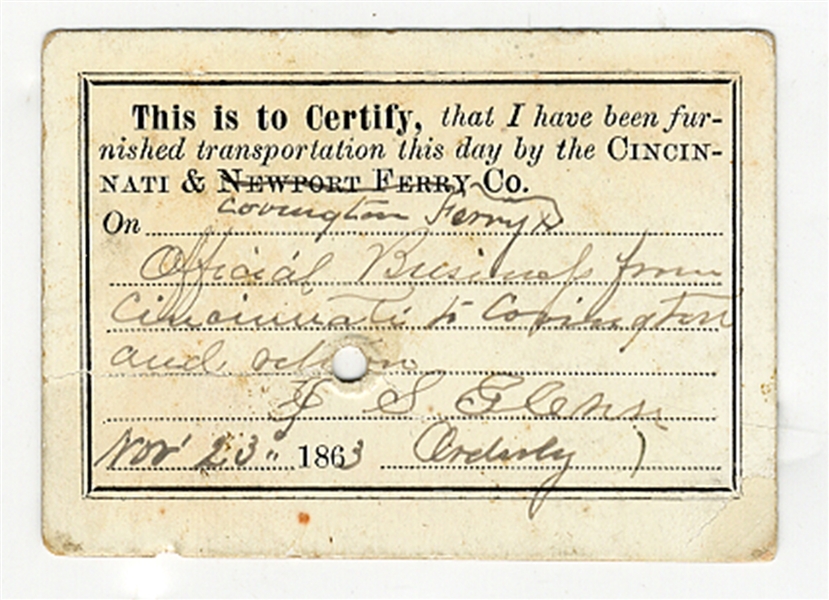 This is to Certify, that I have been fur-
nished transportation this day by the CINCIN-
NATI & NEWPORT FERRY CO.
Covington Ferry
On
Official Business from
Cincinnati to Covington
and return
S Glenn
Nov 23 1863 Orderly